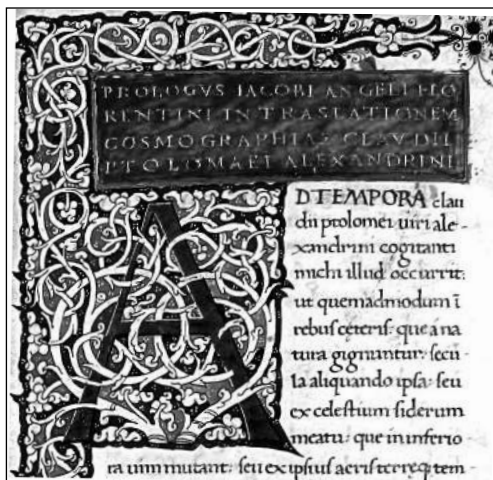 PROLOGVS IACOBI ANGELI FLO
RENTINI IN TRASLATIONEM
COSMOGRAPHIAE CLAVDII
PTOLOMAEI ALEXANDRINI
AD TEMPORA clau
dii ptolomei uiri ale-
xandrini cogitanti
michi illud occurrit:
ut quemadmodum ĩ
rebus ceteris: que a na
tura gignuntur: secu
la aliquando ipsa: seu
ex celestium siderum
meatu: que in inferio
ra uim mutant: seu ex ipsius aeris terreq; tem-